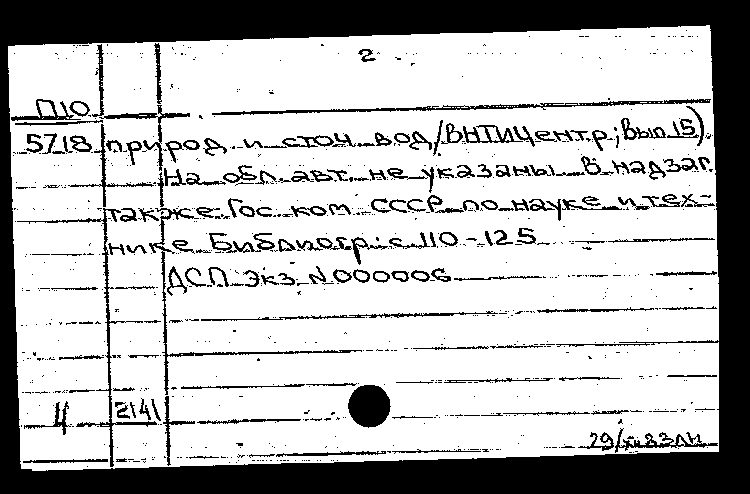 2
П10
5718 природ. и сточ. вод/ВНТИЦентр; Вып. 15).
На обл. авт. не указаны. В надзаг.
также: Гос. ком. СССР по науке и тех-
нике. Библиогр.: с. 110-125
ДСП. Экз. N 000006
4 2141